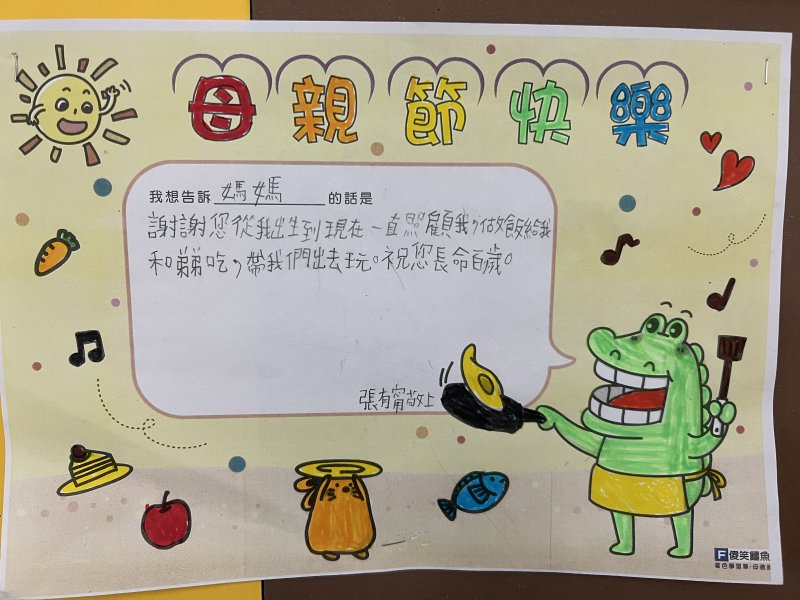 母親節快樂
我想告訴 媽媽 的話是
謝謝您從我出生到現在一直照顧我，做飯給我
和弟弟吃，帶我們出去玩。祝您長命百歲。
張有甯敬上
F 傻笑鱷魚
著色學習單-母親節